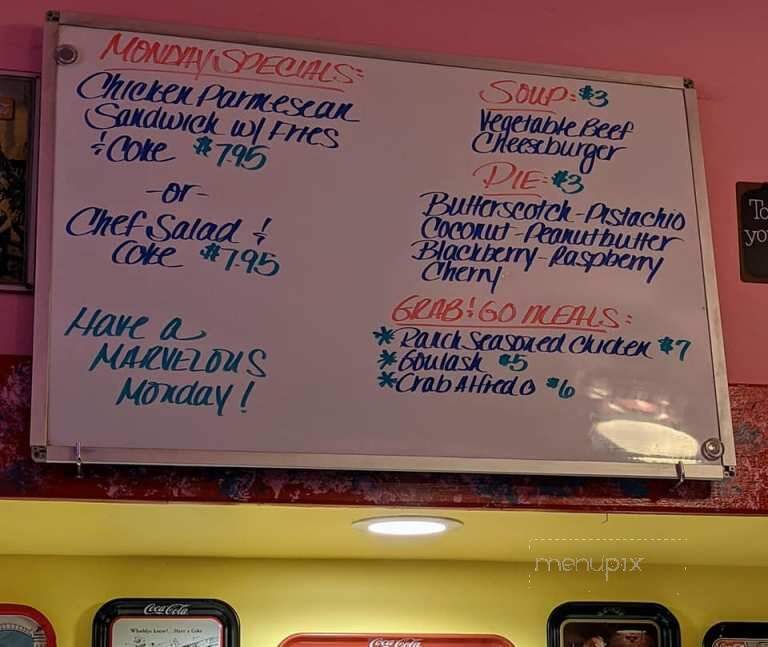 MONDAY SPECIALS:
Chicken Parmesean
Sandwich w/ Fries
& Coke $7.95
-or-
Chef Salad &
Coke $7.95
Have a
MARVELOUS
Monday!
SOUP: $3
Vegetable Beef
Cheeseburger
PIE: $3
Butterscotch - Pistachio
Coconut - Peanutbutter
Blackberry - Raspberry
Cherry
GRAB & GO MEALS:
* Ranch Seasoned Chicken $7
* Goulash $5
* Crab Alfredo $6
To
you
menupix
Coca-Cola
Coca-Cola